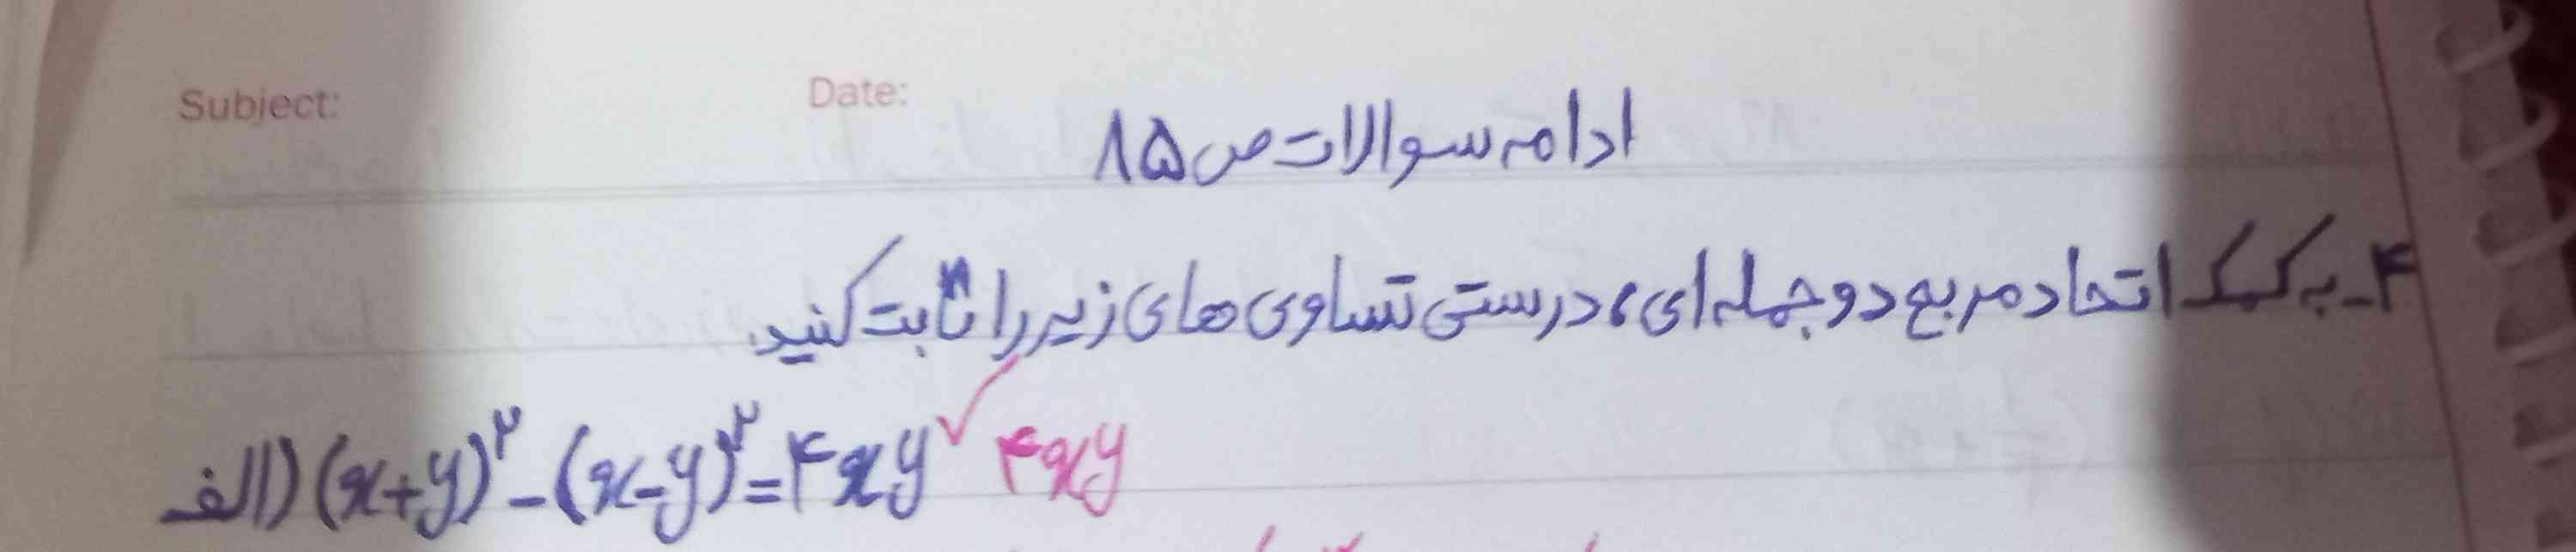 Subject: Date:
ادامه سوالات ص ۸۵
۴- به کمک اتحاد مربع دو جمله ای، درستی تساوی های زیر را ثابت کنید.
الف) (x+y)^۲ - (x-y)^۲ = ۴xy ✓ ۴xy